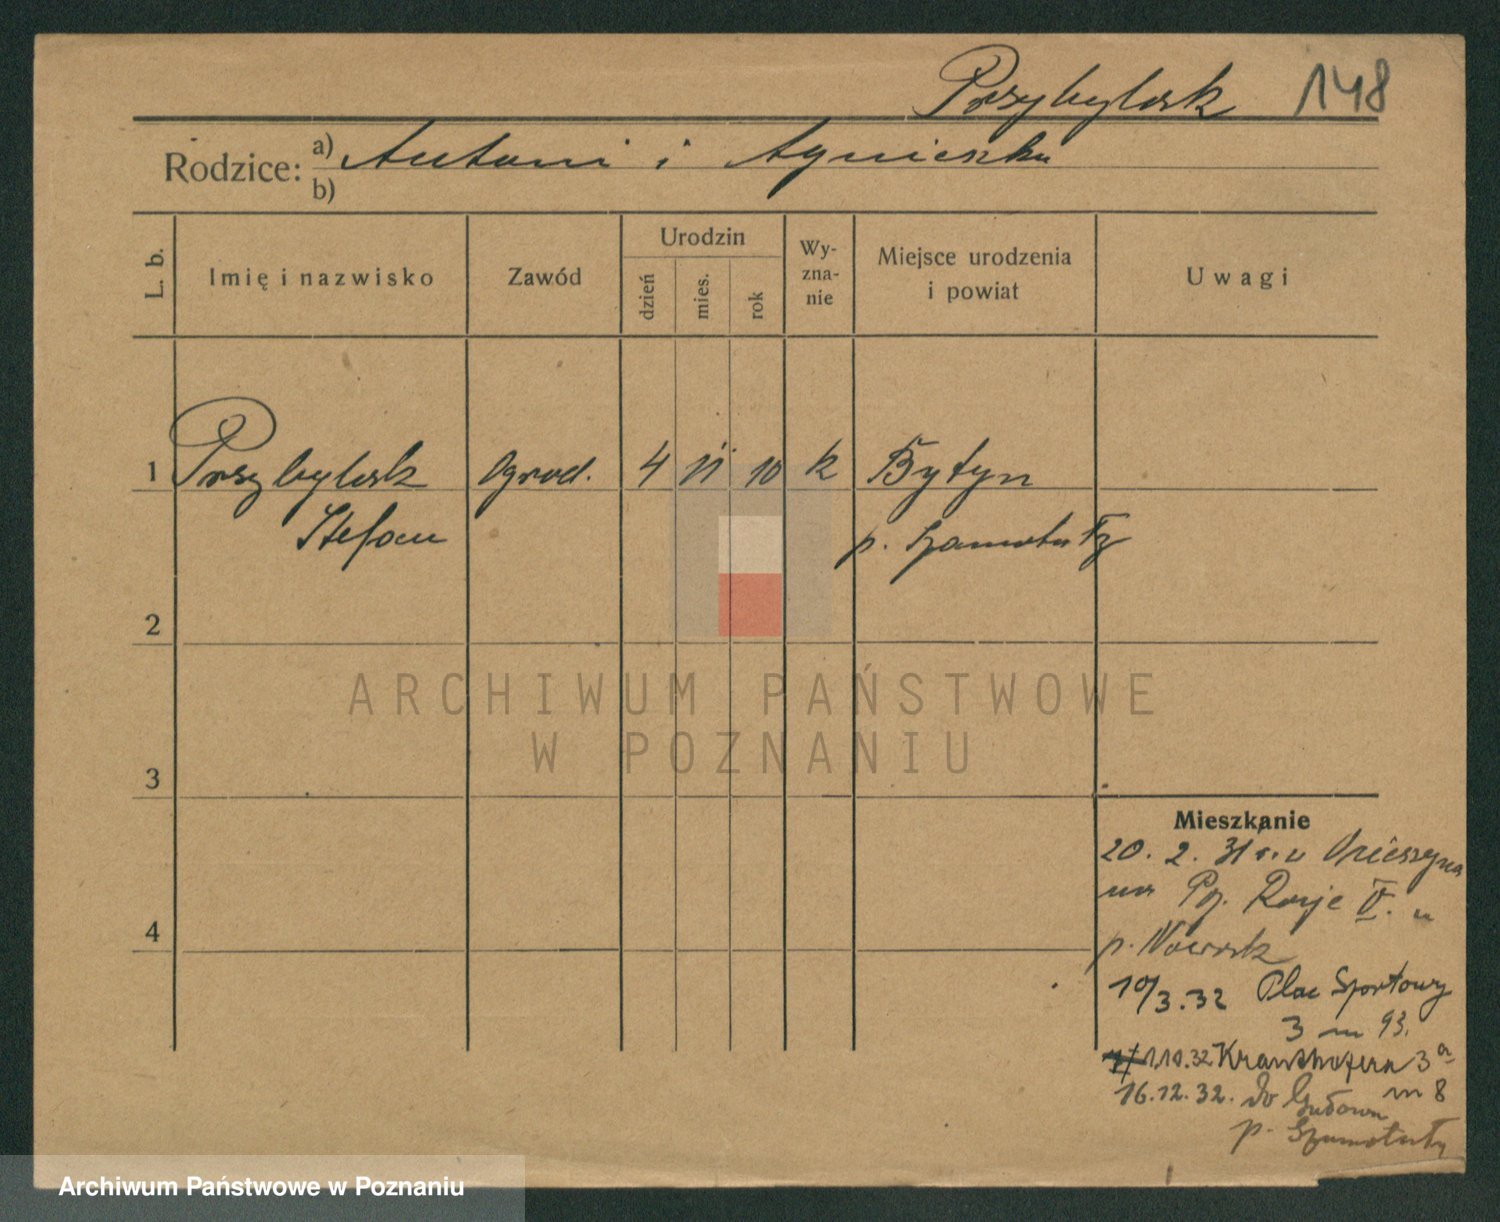 Przybylsk 148
Rodzice: a) Antoni i Agnieszka
b)
L. b.
Imię i nazwisko
Zawód
Urodzin
dzień
mies.
rok
Wy-
zna-
nie
Miejsce urodzenia
i powiat
Uwagi
1 Przybylsk Ogrod. 4 11 10 k Bytyn
Stefan p. Szamotuły
2
ARCHIWUM PAŃSTWOWE
W POZNANIU
3
Mieszkanie
20. 2. 31 r. u
na Pp. Raoje V. u
4
p. Nowosk
10/3.32 Plac Sportowy
3 m 93.
1.10.32 Kranthofera 3a
16.12.32. do m 8
p. Szamotuły
Archiwum Państwowe w Poznaniu